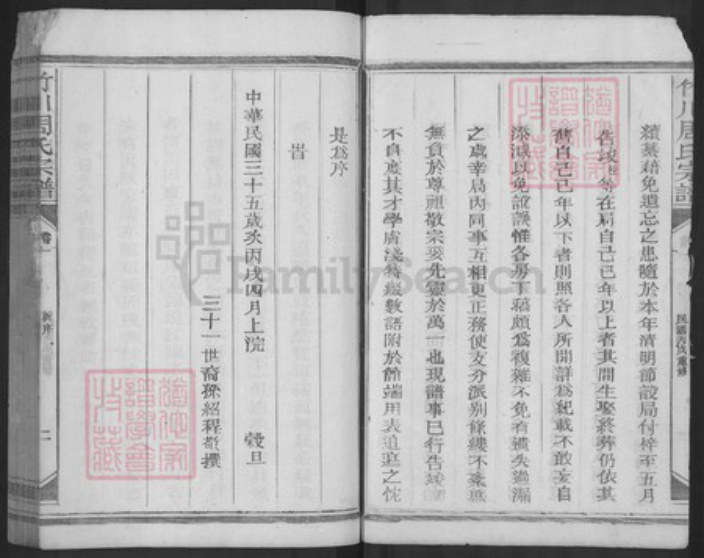 竹川周氏宗譜
民國丙戌重修
續纂藉免遺忘之患隨於本年清明節設局付梓至五月
告竣 等在局自己巳年以上者其間生娶終葬仍依其
舊自己巳年以下者則照各人所開詳為紀載不敢妄自
添減以免訛誤惟各房丁稿頗為複雜不免有遺失過漏
之處幸局內同事互相更正務使支分派別條縷不紊庶
無負於尊祖敬宗妥先靈於萬一也現譜事已行告竣
不自度其才學膚淺特綴數語附於節端用表追遠之忱
是為序
旹
中華民國三十五歲次丙戌四月上浣 穀旦
三十一世裔孫紹程敬撰
竹川周氏宗譜
卷一
新序
二
譜學會
FamilySearch